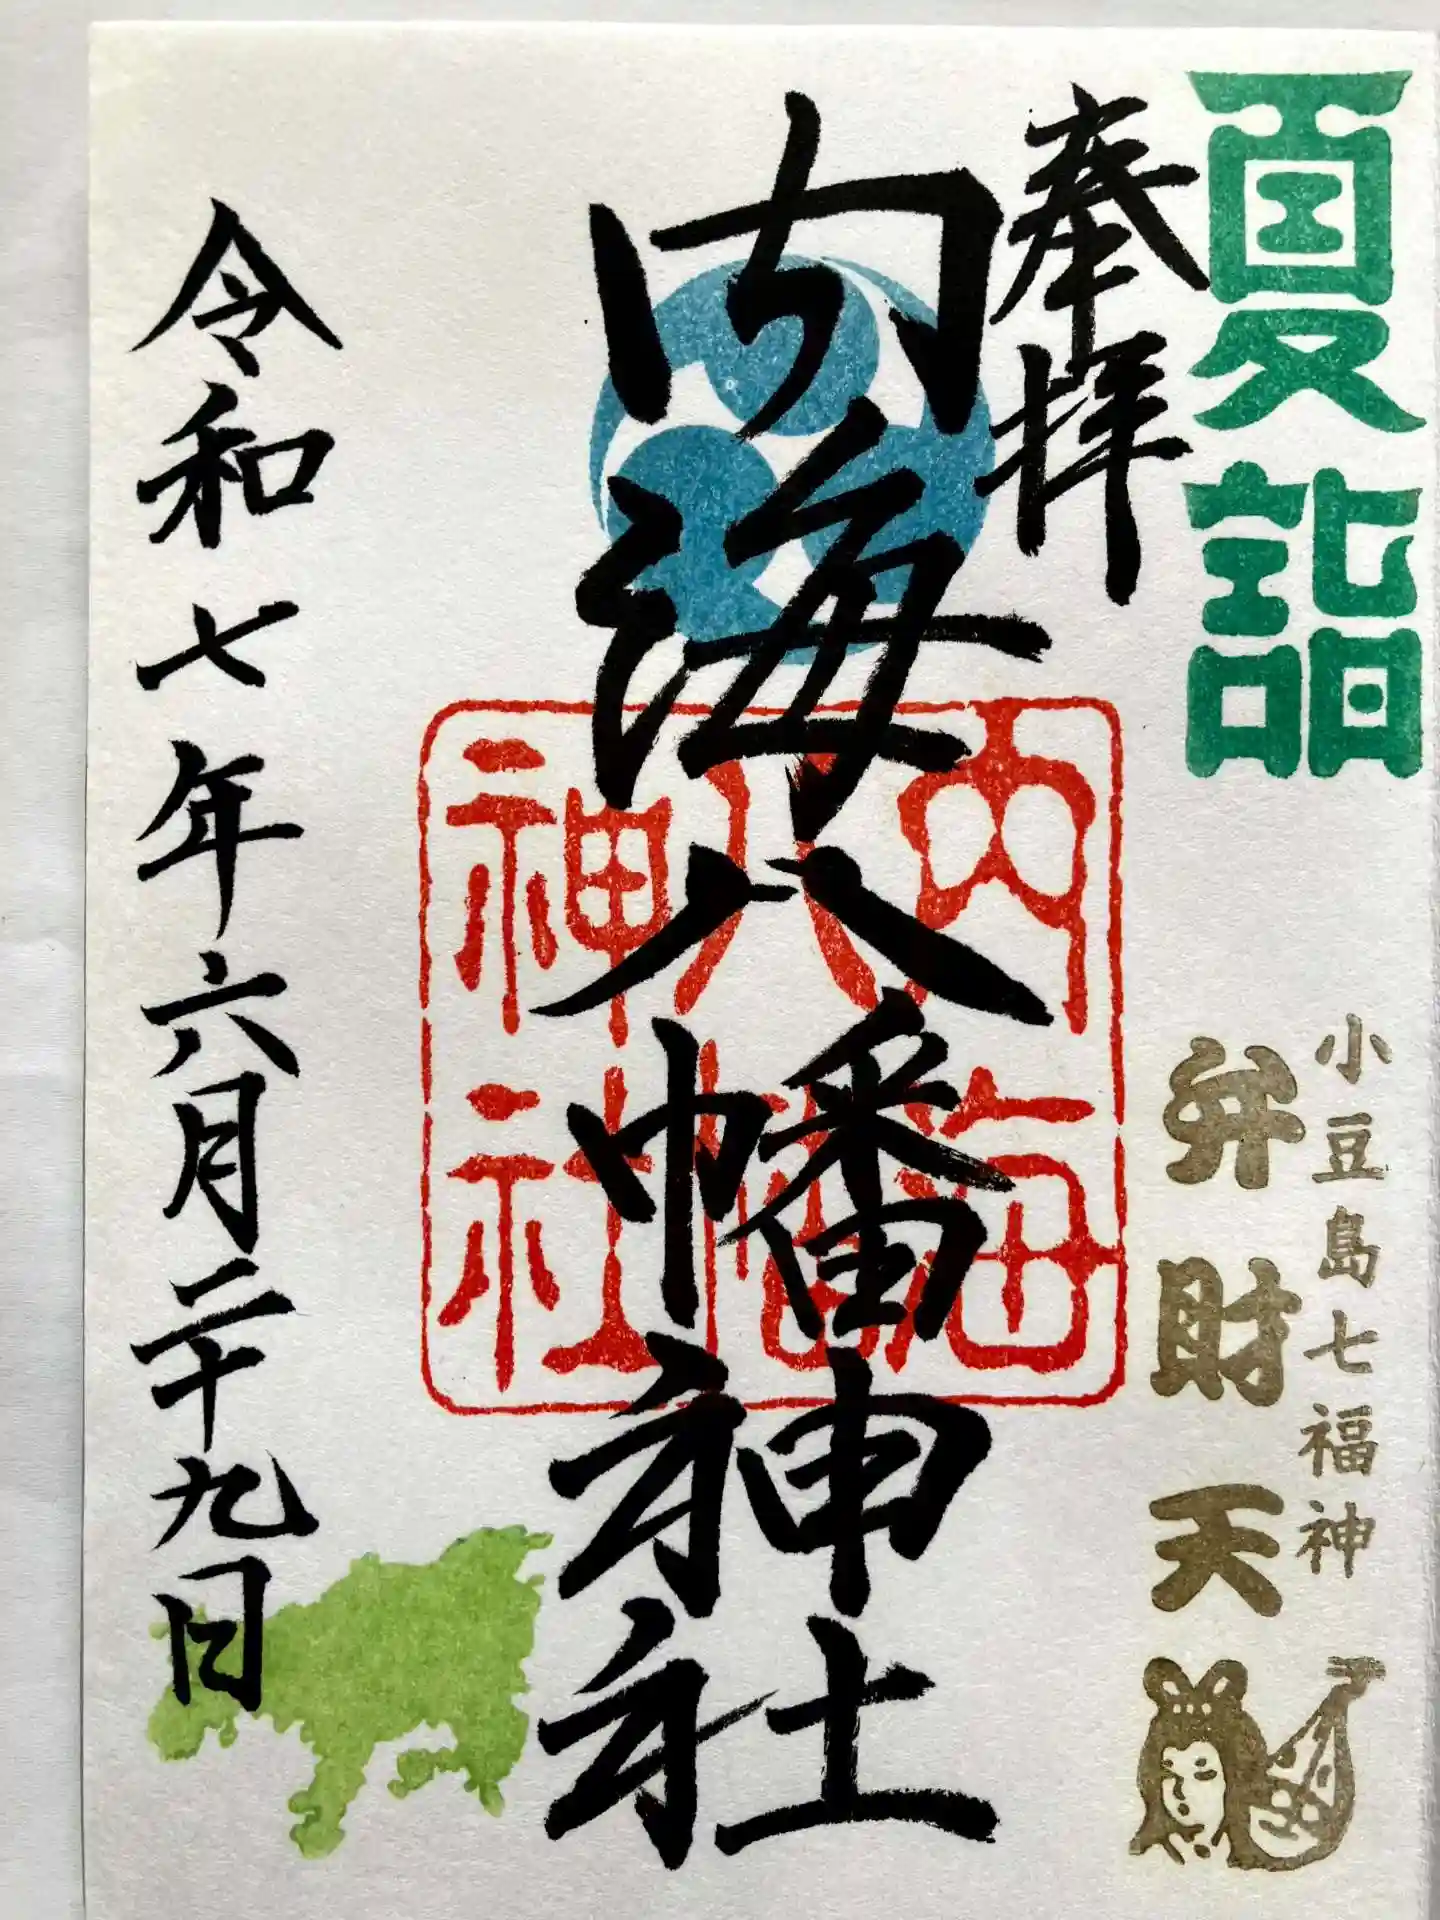 夏詣
奉拝
小豆島七福神
弁財天
内海八幡神社
内海
八幡
神社
令和七年六月二十九日